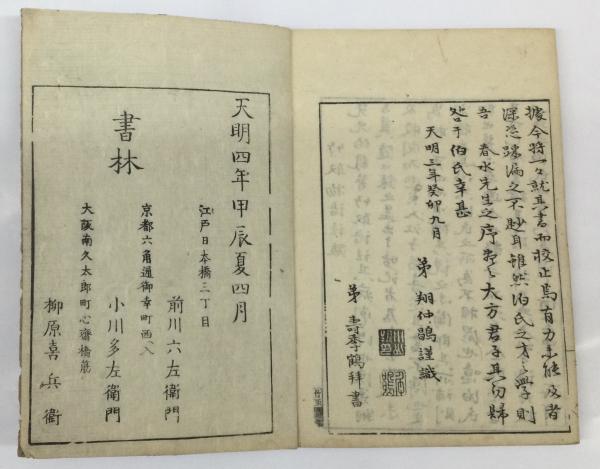 據今将一々就其書而校止焉有力未能及者
深恐踈漏之不尠耳雖然伯氏之才之學則
吾春水先生之序盡之大方君子其勿歸
咎于伯氏幸甚
天明三年癸卯九月
弟 翔仲鶤謹識
弟 壽季鶴拜書
天明四年甲辰夏四月
書林
江戸日本橋三丁目
前川六左衛門
京都六角通御幸町西入
小川多左衛門
大阪南久太郎町心齋橋筋
柳原喜兵衛